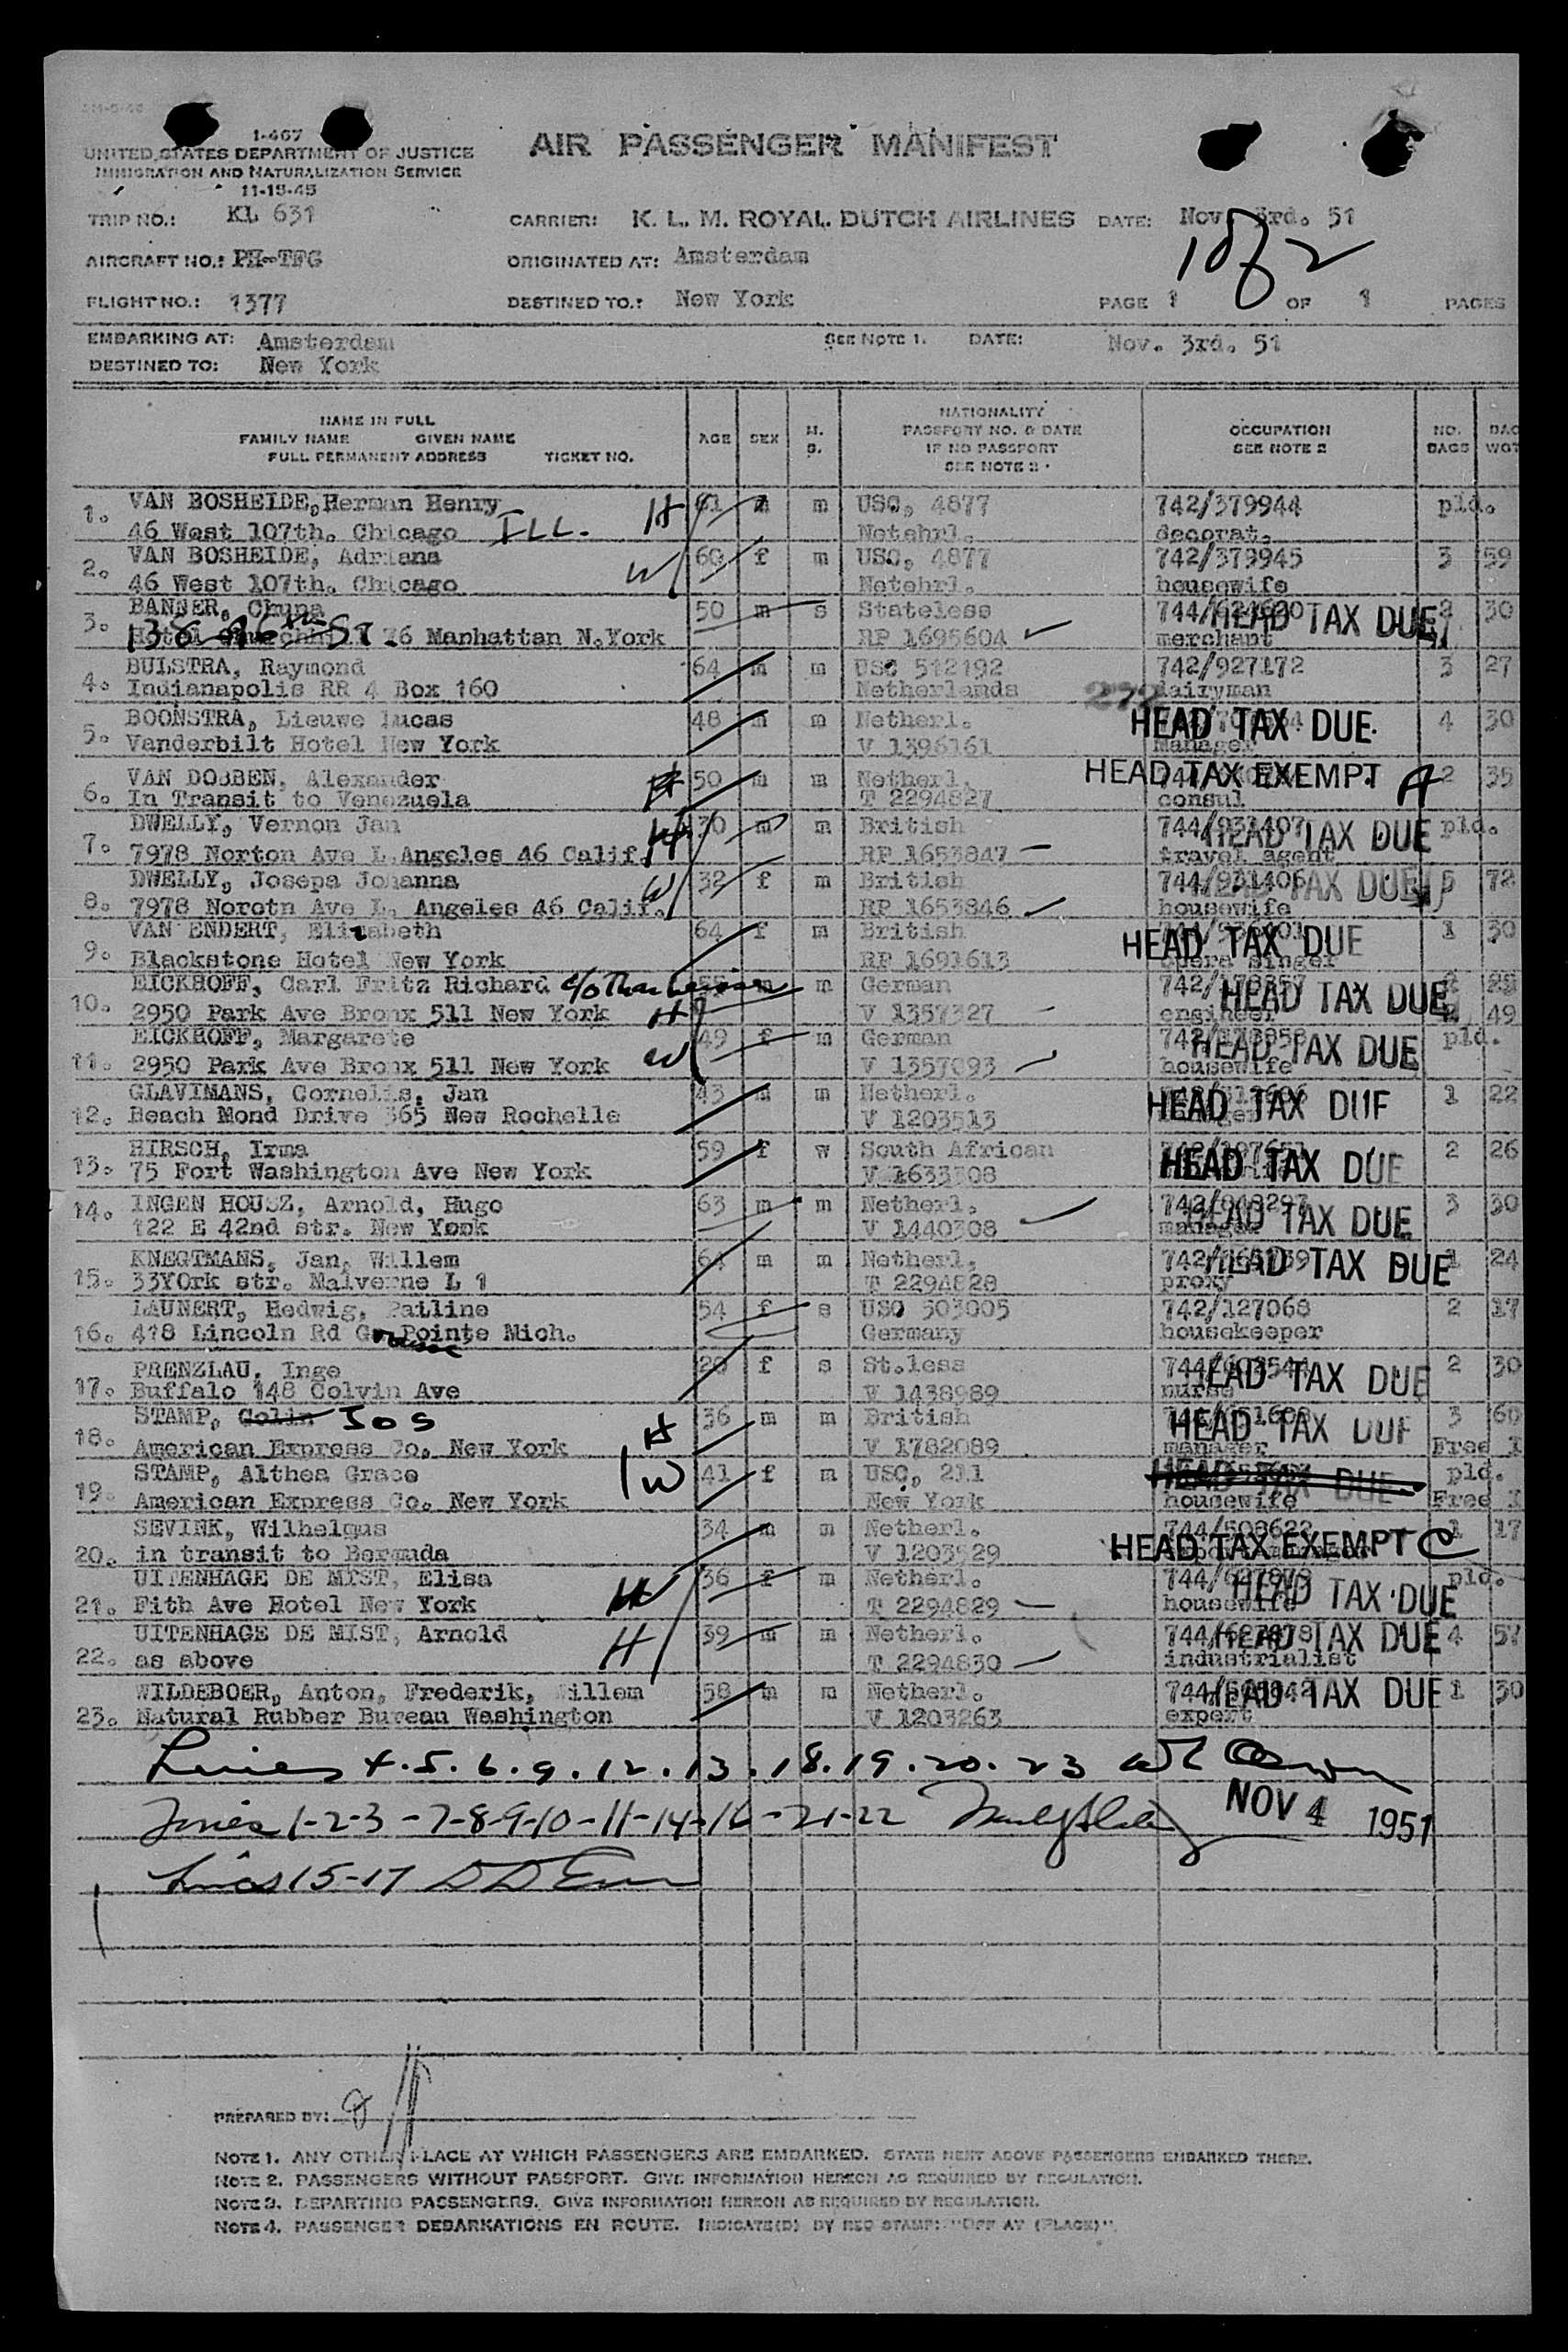 1-467
UNITED STATES DEPARTMENT OF JUSTICE
IMMIGRATION AND NATURALIZATION SERVICE
11-15-45
AIR PASSENGER MANIFEST
TRIP NO.: KL 631 CARRIER: K. L. M. ROYAL DUTCH AIRLINES DATE: Nov 3rd. 51
1 of 2
AIRCRAFT NO.: PH-TFG ORIGINATED AT: Amsterdam
FLIGHT NO.: 1377 DESTINED TO.: New York PAGE 1 OF 1 PAGES
EMBARKING AT: Amsterdam SEE NOTE 1. DATE: Nov. 3rd. 51
DESTINED TO: New York
NAME IN FULL NATIONALITY
FAMILY NAME GIVEN NAME AGE SEX M. PASSPORT NO. & DATE OCCUPATION NO. BAG
FULL PERMANENT ADDRESS TICKET NO. S. IF NO PASSPORT SEE NOTE 2 BAGS WGT
SEE NOTE 2
1. VAN BOSHEIDE, Herman Henry H 61 m m USC, 4877 742/379944 pld.
46 West 107th. Chicago ILL. Netehrl. decorat.
2. VAN BOSHEIDE, Adriana W 60 f m USC, 4877 742/379945 3 59
46 West 107th. Chicago Netehrl. housewife
3. BANNER, Chuna 50 m s Stateless 744/ HEAD TAX DUE 2 30
138 76 Manhattan N.York RP 1695604 merchant
4. BULSTRA, Raymond 64 m m USC 512192 742/927172 3 27
Indianapolis RR 4 Box 160 Netherlands dairyman
5. BOONSTRA, Lieuwe Lucas 48 m m Netherl. HEAD TAX DUE 4 30
Vanderbilt Hotel New York V 1396161 manager
6. VAN DOBBEN, Alexander 50 m m Netherl. HEAD TAX EXEMPT A 2 35
In Transit to Venezuela T 2294827 consul
7. DWELLY, Vernon Jan H 30 m m British 744/931407 HEAD TAX DUE pld.
7978 Norton Ave L.Angeles 46 Calif. RP 1653847 travel agent
8. DWELLY, Josepa Johanna W 32 f m British 744/931406 HEAD TAX DUE 5 72
7978 Norotn Ave L. Angeles 46 Calif. RP 1653846 housewife
9. VAN ENDERT, Elizabeth 64 f m British HEAD TAX DUE 1 30
Blackstone Hotel New York RP 1691613 opera singer
10. EICKHOFF, Carl Fritz Richard c/o 55 m m German 742/ HEAD TAX DUE 2 25
2950 Park Ave Bronx 511 New York H V 1357327 engineer 49
11. EICKHOFF, Margarete 49 f m German 742/ HEAD TAX DUE pld.
2950 Park Ave Bronx 511 New York W V 1357093 housewife
12. GLAVIMANS, Cornelis, Jan 43 m m Netherl. HEAD TAX DUE 1 22
Beach Mond Drive 365 New Rochelle V 1203513
13. HIRSCH, Irma 59 f w South African HEAD TAX DUE 2 26
75 Fort Washington Ave New York V 1633308
14. INGEN HOUSZ, Arnold, Hugo 63 m m Netherl. 742/ HEAD TAX DUE 3 30
122 E 42nd str. New York V 1440308 manager
15. KNEGTMANS, Jan, Willem 64 m m Netherl. 742/ HEAD TAX DUE 1 24
33YOrk str. Malverne L 1 T 2294828 proxy
16. LAUNERT, Hedwig, Pailine 54 f s USC 503005 742/127068 2 17
418 Lincoln Rd Grosse Pointe Mich. Germany housekeeper
17. PRENZLAU, Inge 28 f s St.less 744/ HEAD TAX DUE 2 30
Buffalo 148 Colvin Ave V 1438989 nurse
18. STAMP, Colin JOS 36 m m British HEAD TAX DUE 3 60
American Express Co. New York H V 1782089 manager Free 1
19. STAMP, Althea Grace W 41 f m USC, 211 HEAD TAX DUE pld.
American Express Co. New York New York housewife Free 1
20. SEVINK, Wilhelgus 34 m m Netherl. 744/508622 1 17
in transit to Bermuda V 1203529 HEAD TAX EXEMPT C
21. UITENHAGE DE MIST, Elisa W 36 f m Netherl. 744/627879 HEAD TAX DUE pld.
Fith Ave Hotel New York T 2294829 housewife
22. UITENHAGE DE MIST, Arnold H 39 m m Netherl. 744/627878 HEAD TAX DUE 4 57
as above T 2294830 industrialist
23. WILDEBOER, Anton, Frederik, Willem 58 m m Netherl. 744/ HEAD TAX DUE 1 30
Natural Rubber Bureau Washington V 1203263 expert
Lines 4.5.6.9.12.13.18.19.20.23
Lines 1-2-3-7-8-9-10-11-14-16-21-22 NOV 4 1951
Lines 15-17
PREPARED BY:
NOTE 1. ANY OTHER PLACE AT WHICH PASSENGERS ARE EMBARKED. STATE NEXT ABOVE PASSENGERS EMBARKED THERE.
NOTE 2. PASSENGERS WITHOUT PASSPORT. GIVE INFORMATION HEREON AS REQUIRED BY REGULATION.
NOTE 3. DEPARTING PASSENGERS. GIVE INFORMATION HEREON AS REQUIRED BY REGULATION.
NOTE 4. PASSENGER DEBARKATIONS EN ROUTE. INDICATE(D) BY RED STAMP: "OFF AT (PLACE)".